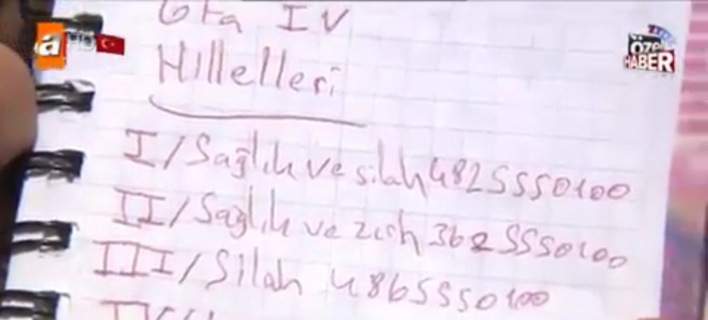 Gta IV
a HD
ÖZEL
HABER
Hillelleri
I/Sağlık ve silah 4825550100
II/Sağlık ve zırh 3625550100
III/Silah 4865550100